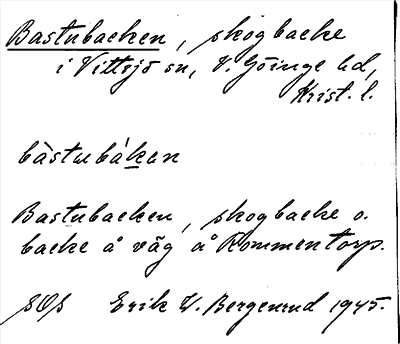 Bastubacken, skogbacke
i Vittsjö sn, V. Göinge hd,
Krist. l.
bàstubáken
Bastubacken, skogbacke o.
backe å väg å Kommentorp.
sOs Erik W. Bergenrud 1945.